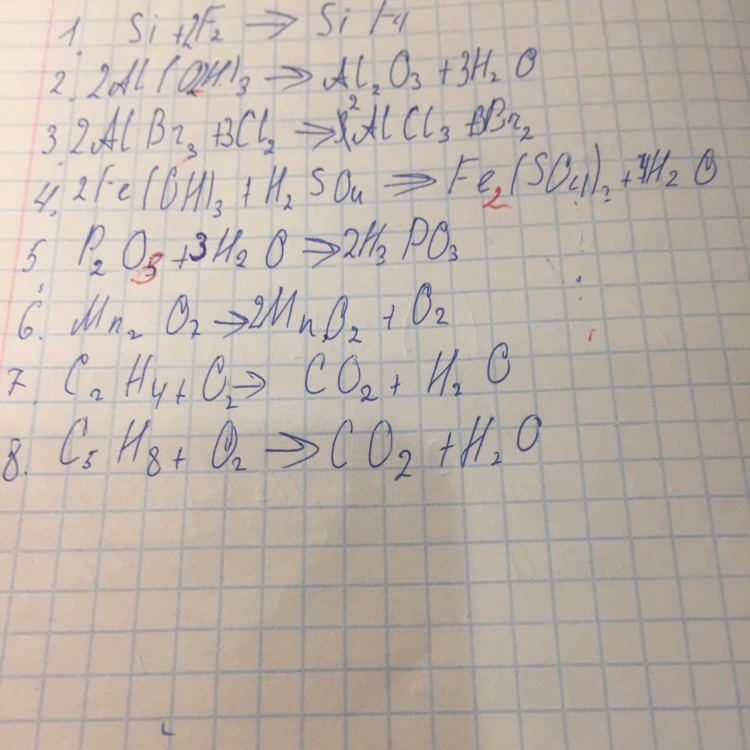 1. Si + 2F₂ → SiF4
2. 2Al(OH)₃ → Al₂O₃ + 3H₂O
3. 2AlBr₃ + 3Cl₂ → 2AlCl₃ + 3Br₂
4. 2Fe(OH)₃ + H₂SO₄ → Fe₂(SO₄)₃ + H₂O
5. P₂O₃ + 3H₂O → 2H₃PO₃
6. Mn₂O₇ → 2MnO₂ + O₂
7. C₂H₄ + O₂ → CO₂ + H₂O
8. C₅H₈ + O₂ → CO₂ + H₂O